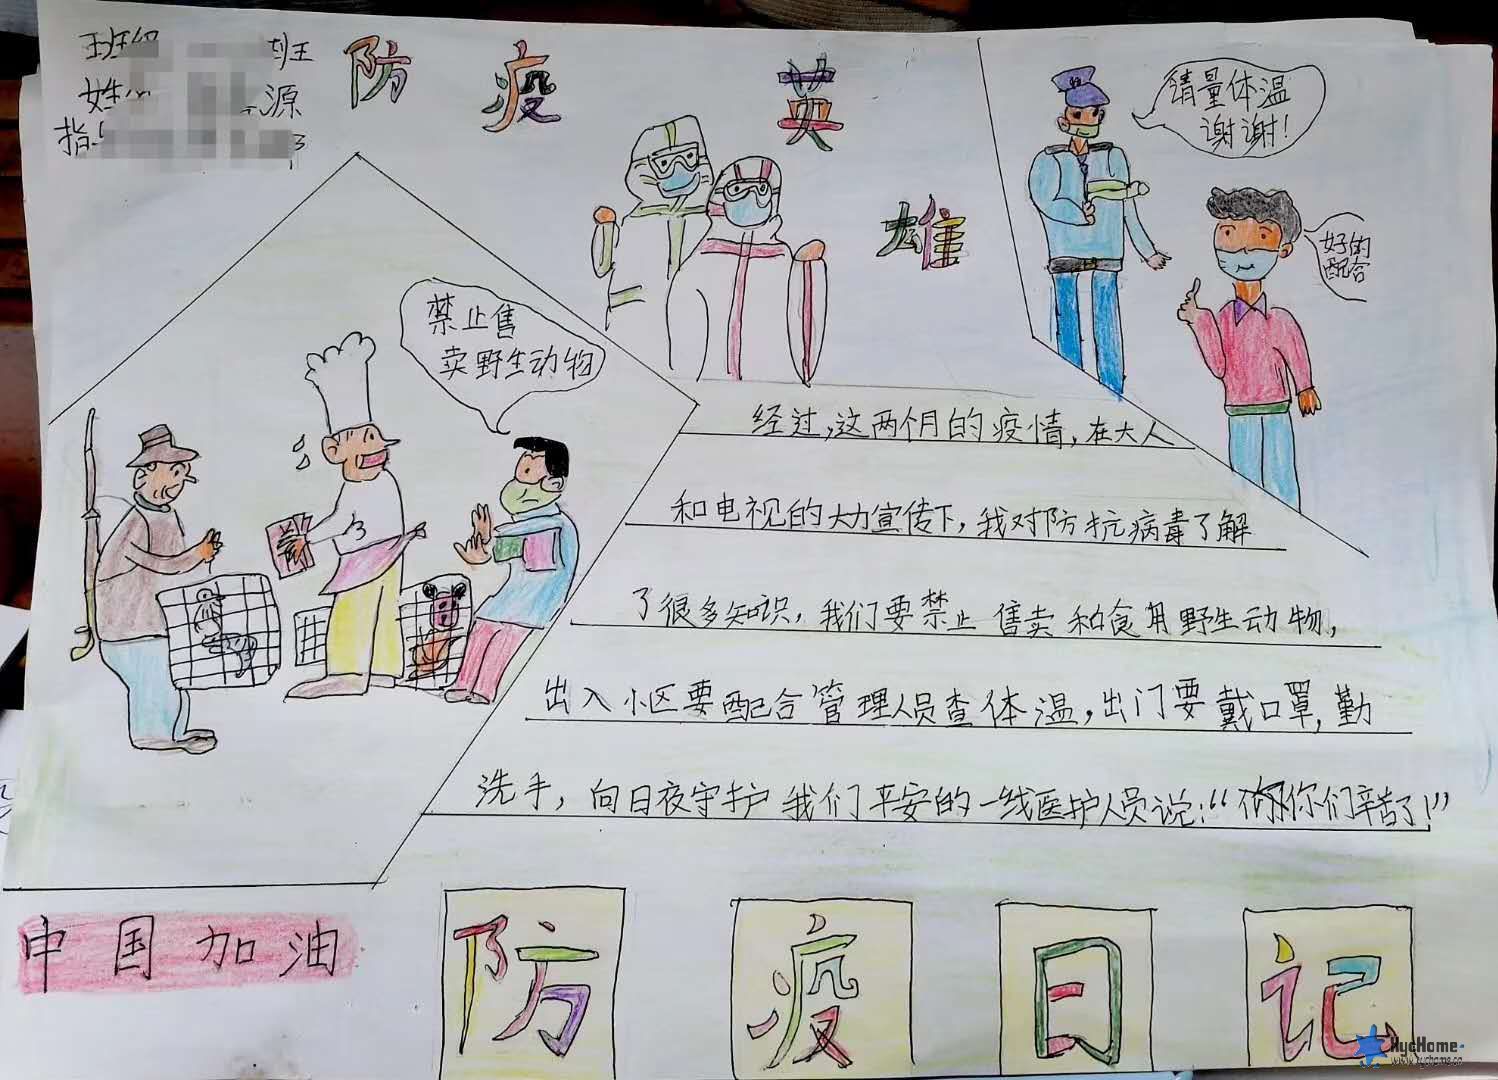 防疫英雄
请量体温
谢谢！
好的
配合
禁止售
卖野生动物
经过，这两个月的疫情，在大人
和电视的大力宣传下，我对防抗病毒了解
了很多知识，我们要禁止售卖和食用野生动物，
出入小区要配合管理人员查体温，出门要戴口罩，勤
洗手，向日夜守护我们平安的一线医护人员说：“你们辛苦了！”
中国加油
防疫日记
HycHome